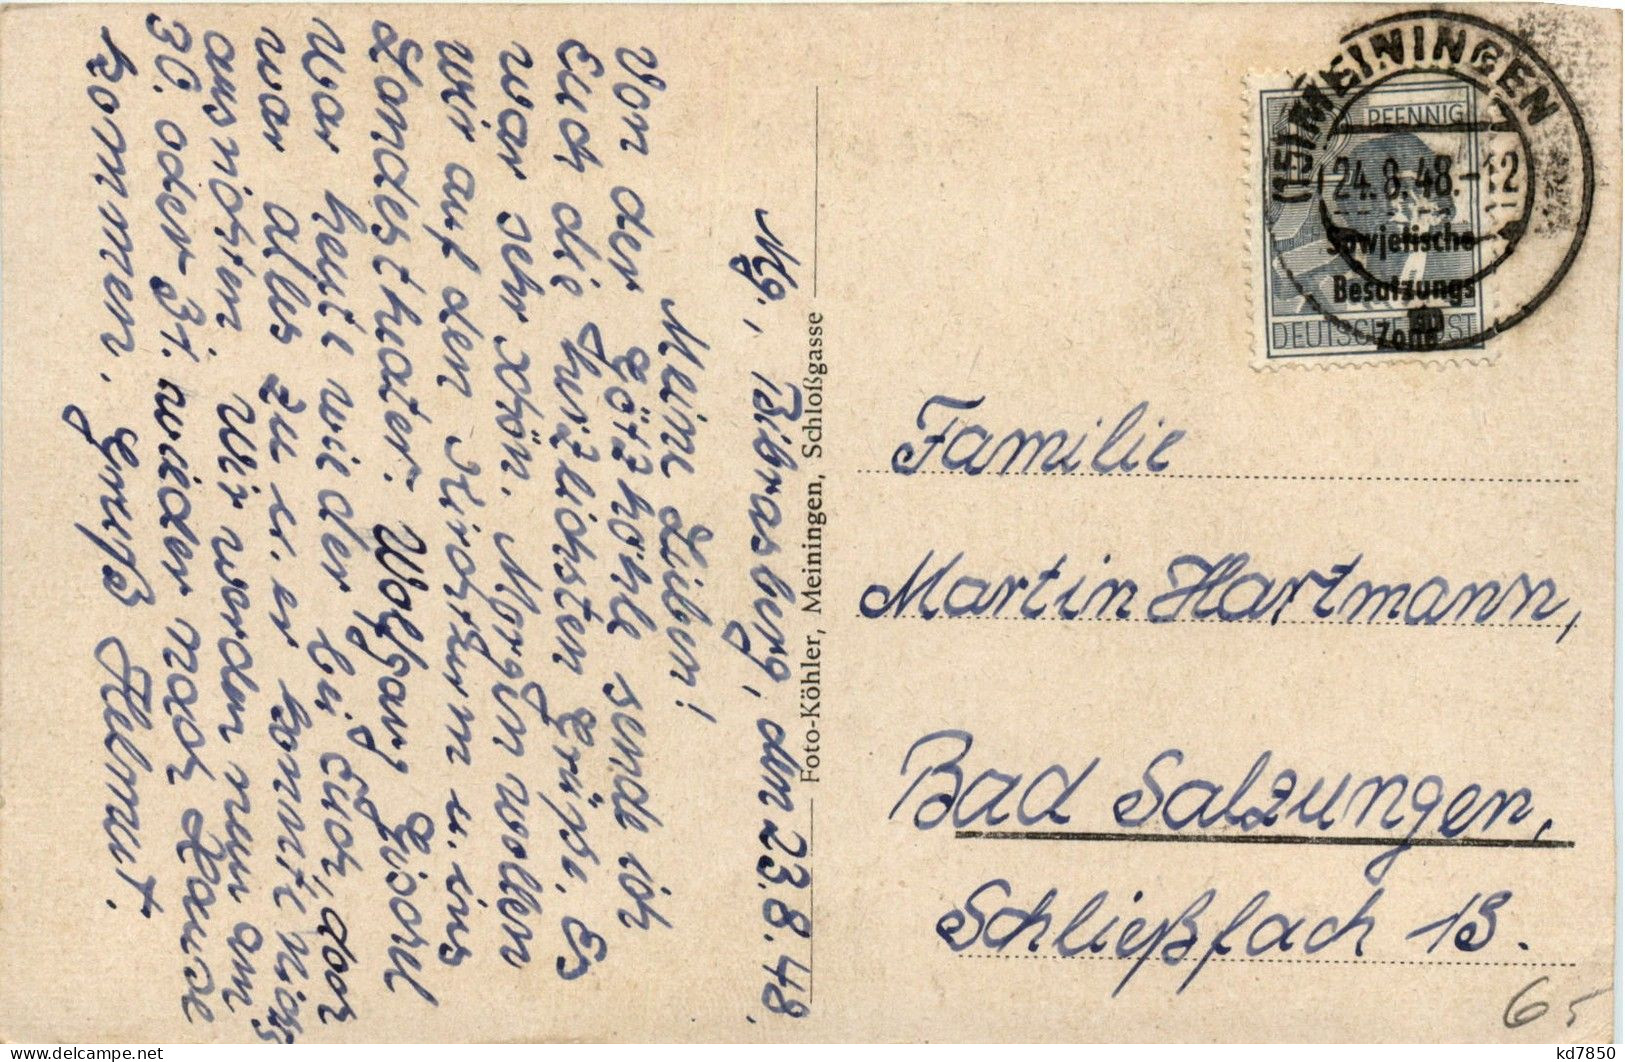 Mgn., Bibrasberg, den 23.8.48.
Meine Lieben!
Von der Götzhöhle sende ich
Euch die herzlichsten Grüße. Es
war sehr schön. Morgen wollen
wir auf den Kirchturm u. ins
Landestheater. Wolfgang
war heute wieder bei Euch, doch
war alles zu u. er konnte nichts
ausrichten. Wir werden nun am
30. oder 31. wieder nach Hause
kommen. Gruß Helmut.
Foto-Köhler, Meiningen, Schloßgasse
(15) MEININGEN
24.8.48.-12
PFENNIG
Sowjetische
Besatzungs
Zone
DEUTSCHE POST
Familie
Martin Hartmann,
Bad Salzungen,
Schließfach 13.
65
kd7850